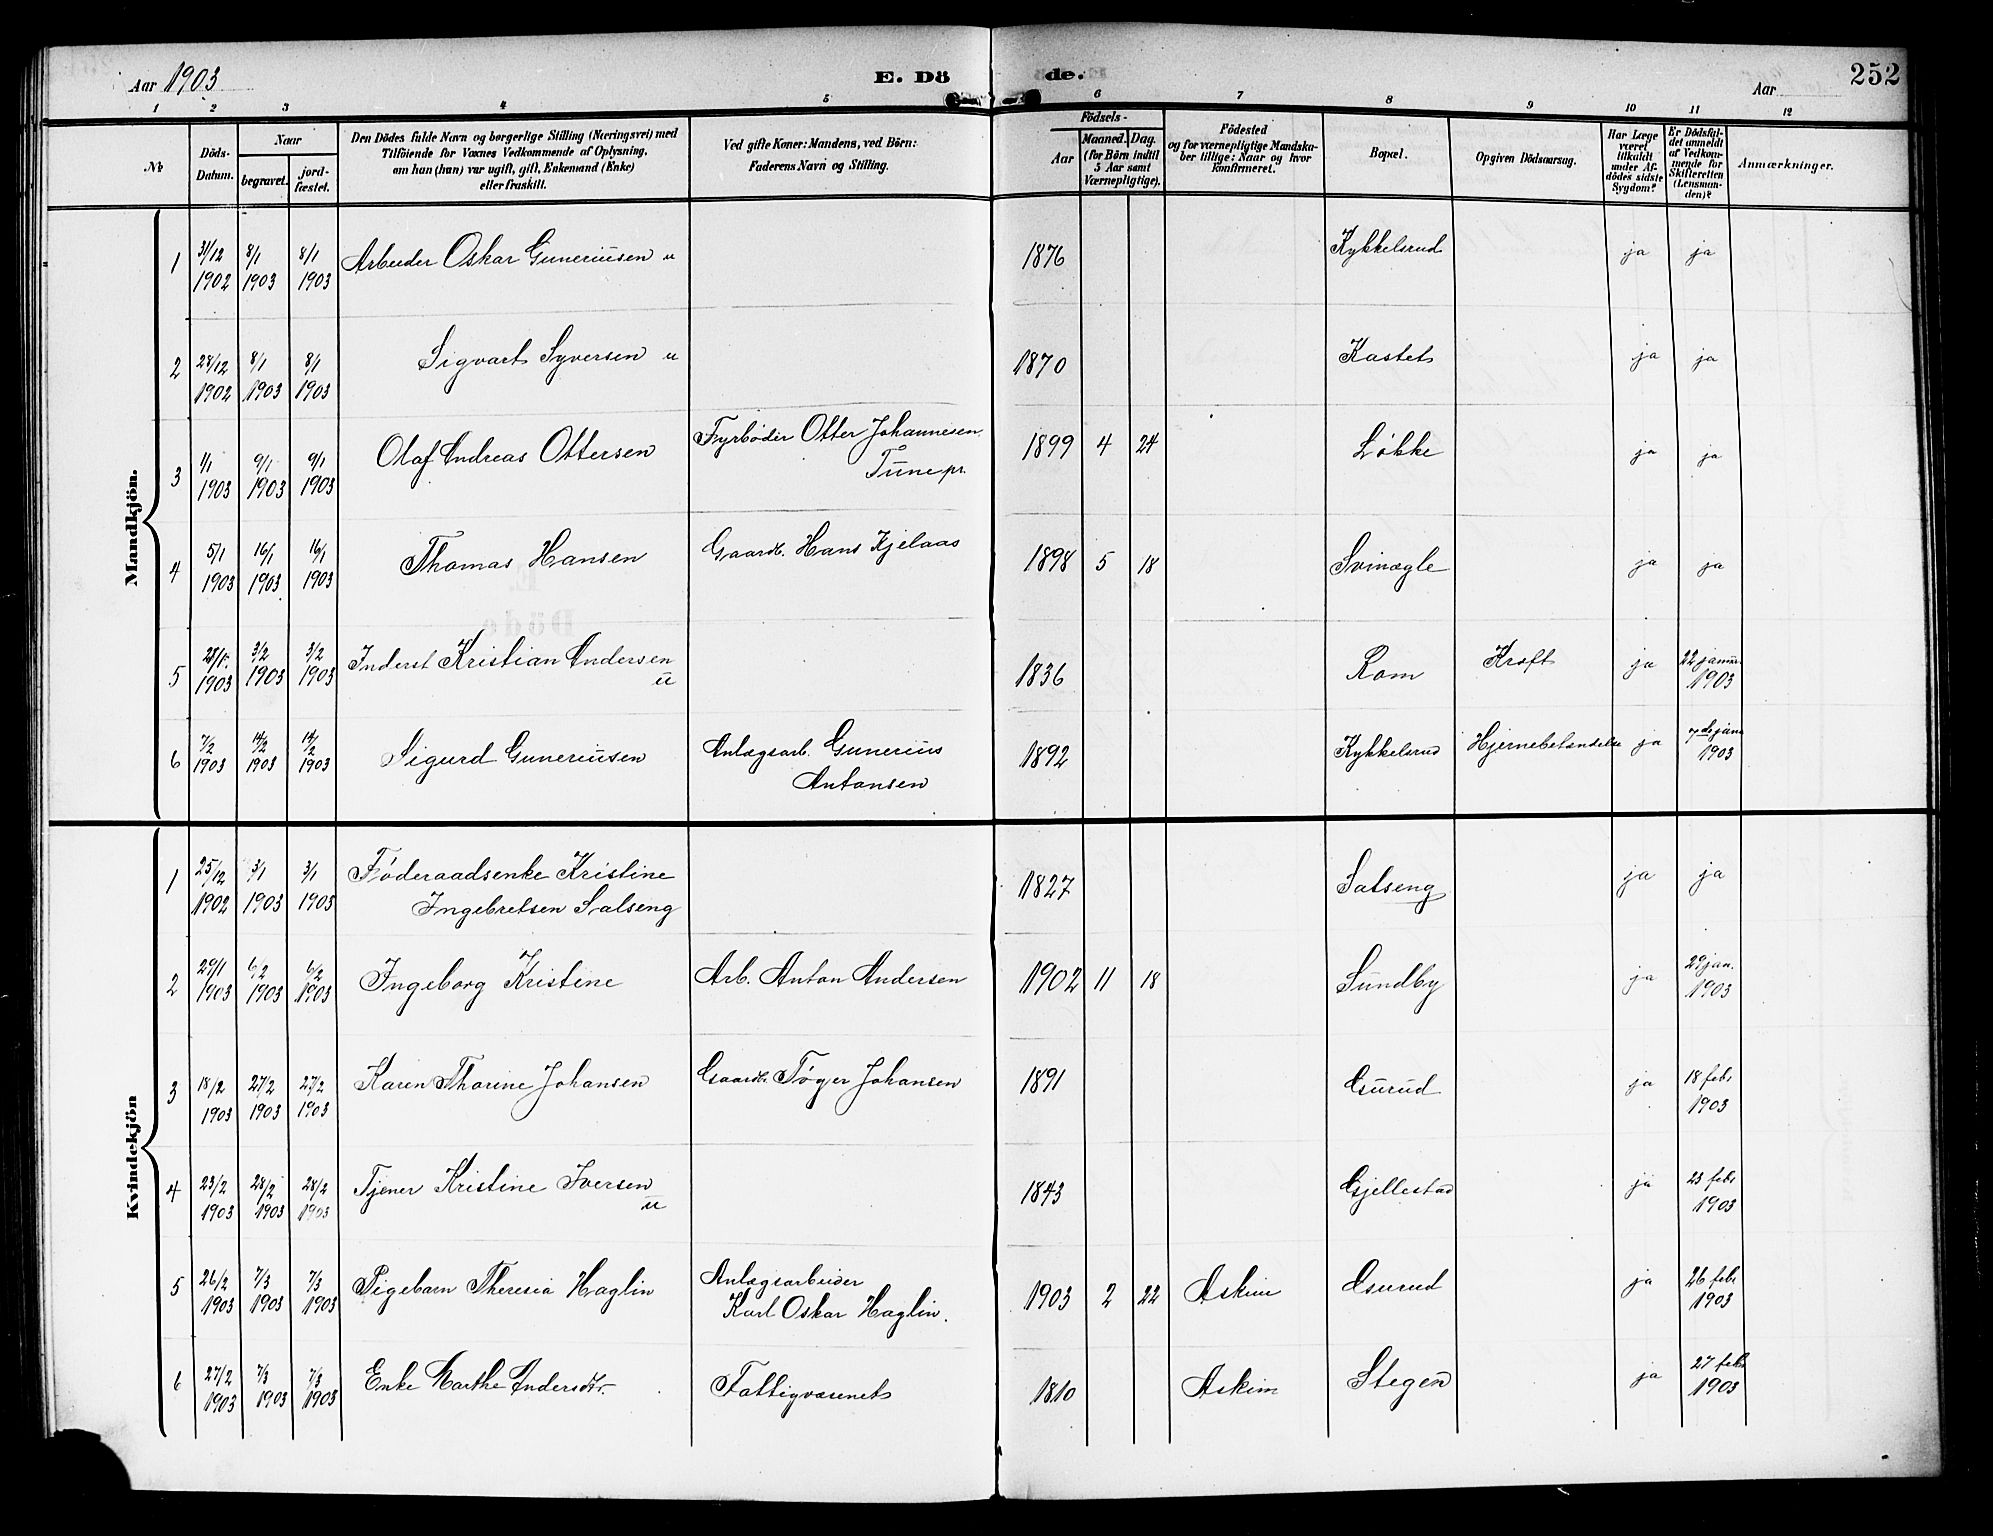 Aar 1903
E. Dö de.
Aar
252
1 2 3 4 5 6 7 8 9 10 11 12
№
Döds-
Datum.
Naar
begravet.
jord-
fæstet.
Den Dödes fulde Navn og borgerlige Stilling (Næringsvei) med
Tilföiende for Voxnes Vedkommende af Oplysning,
om han (hun) var ugift, gift, Enkemand (Enke)
eller fraskilt.
Ved gifte Koner: Mandens, ved Börn:
Faderens Navn og Stilling.
Födsels-
Aar
Maaned. Dag.
(for Börn indtil
5 Aar samt
Værnepligtige).
Födested
og for værnepligtige Mandska-
ber tillige: Naar og hvor
konfirmeret.
Bopæl.
Opgiven Dödsaarsag.
Har Læge
været
tilkaldt
under Af-
dödes sidste
Sygdom?
Er Dödsfal-
det anmeldt
af Vedkom-
mende for
Skifteretten
(Lensman-
den)?
Anmærkninger.
Mandkjön.
1 31/12 1902 8/1 1903 8/1 1903 Arbeider Oskar Guneriusen u 1876 Kykkelsrud ja ja
2 28/12 1902 8/1 1903 8/1 1903 Sigvart Syversen u 1870 Kastet ja ja
3 1/1 1903 9/1 1903 9/1 1903 Olaf Andreas Ottersen Fyrbøder Otter Johannesen 1899 4 24 Løkke ja ja
Tune pr.
4 5/1 1903 16/1 1903 16/1 1903 Thomas Hansen Gaardb. Hans Kjelaas 1898 5 18 Svinøgle ja ja
5 1903 3/2 1903 3/2 1903 Inderst Kristian Andersen 1836 Rom Kræft ja 22 januar
u 1903
6 7/2 1903 14/2 1903 14/2 1903 Sigurd Guneriusen Anlægsarb. Gunerius 1892 Kykkelsrud Hjernebetændelse ja
Antonsen 1903
Kvindekjön
1 25/12 1902 3/1 1903 3/1 1903 Føderaadsenke Kristine 1827 Salseng ja ja
Ingebretsen Salseng
2 29/1 1903 6/2 1903 6/2 1903 Ingeborg Kristine Arb. Anton Andersen 1902 11 18 Sundby ja 29 jan.
1903
3 18/2 1903 27/2 1903 27/2 1903 Karen Thorine Johansen Gaardb. Tøger Johansen 1891 Gsurud ja 18 febr
1903
4 23/2 1903 28/2 1903 28/2 1903 Tjener Kristine Iversen 1843 Gjellestad ja 23 febr
u 1903
5 26/2 1903 7/3 1903 7/3 1903 Pigebarn Theresia Haglin Anlægsarbeider 1903 2 22 Askim Gsurud ja 26 febr
Karl Oskar Haglin. 1903
6 27/2 1903 7/3 1903 7/3 1903 Enke Marthe Andersdtr. Fattigvæsenets 1810 Askim Stegen ja 27 febr
1903